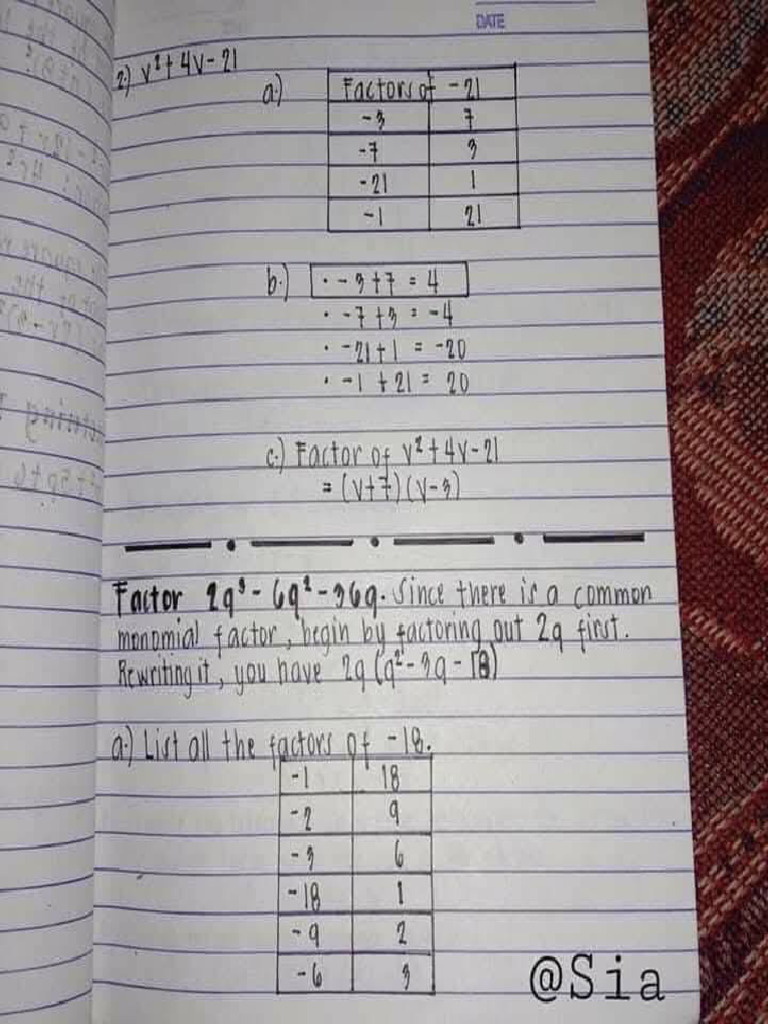 DATE
2.) v² + 4v - 21
a.)
Factors of -21
-3 7
-7 3
-21 1
-1 21
b.) · -3+7 = 4
· -7+3 = -4
· -21+1 = -20
· -1 + 21 = 20
c.) Factor of v² + 4v - 21
= (v+7) (v-3)
Factor 2q³ - 6q² - 36q. Since there is a common
monomial factor, begin by factoring out 2q first.
Rewriting it, you have 2q (q² - 3q - 18)
a.) List all the factors of -18.
-1 18
-2 9
-3 6
-18 1
-9 2
-6 3
@Sia